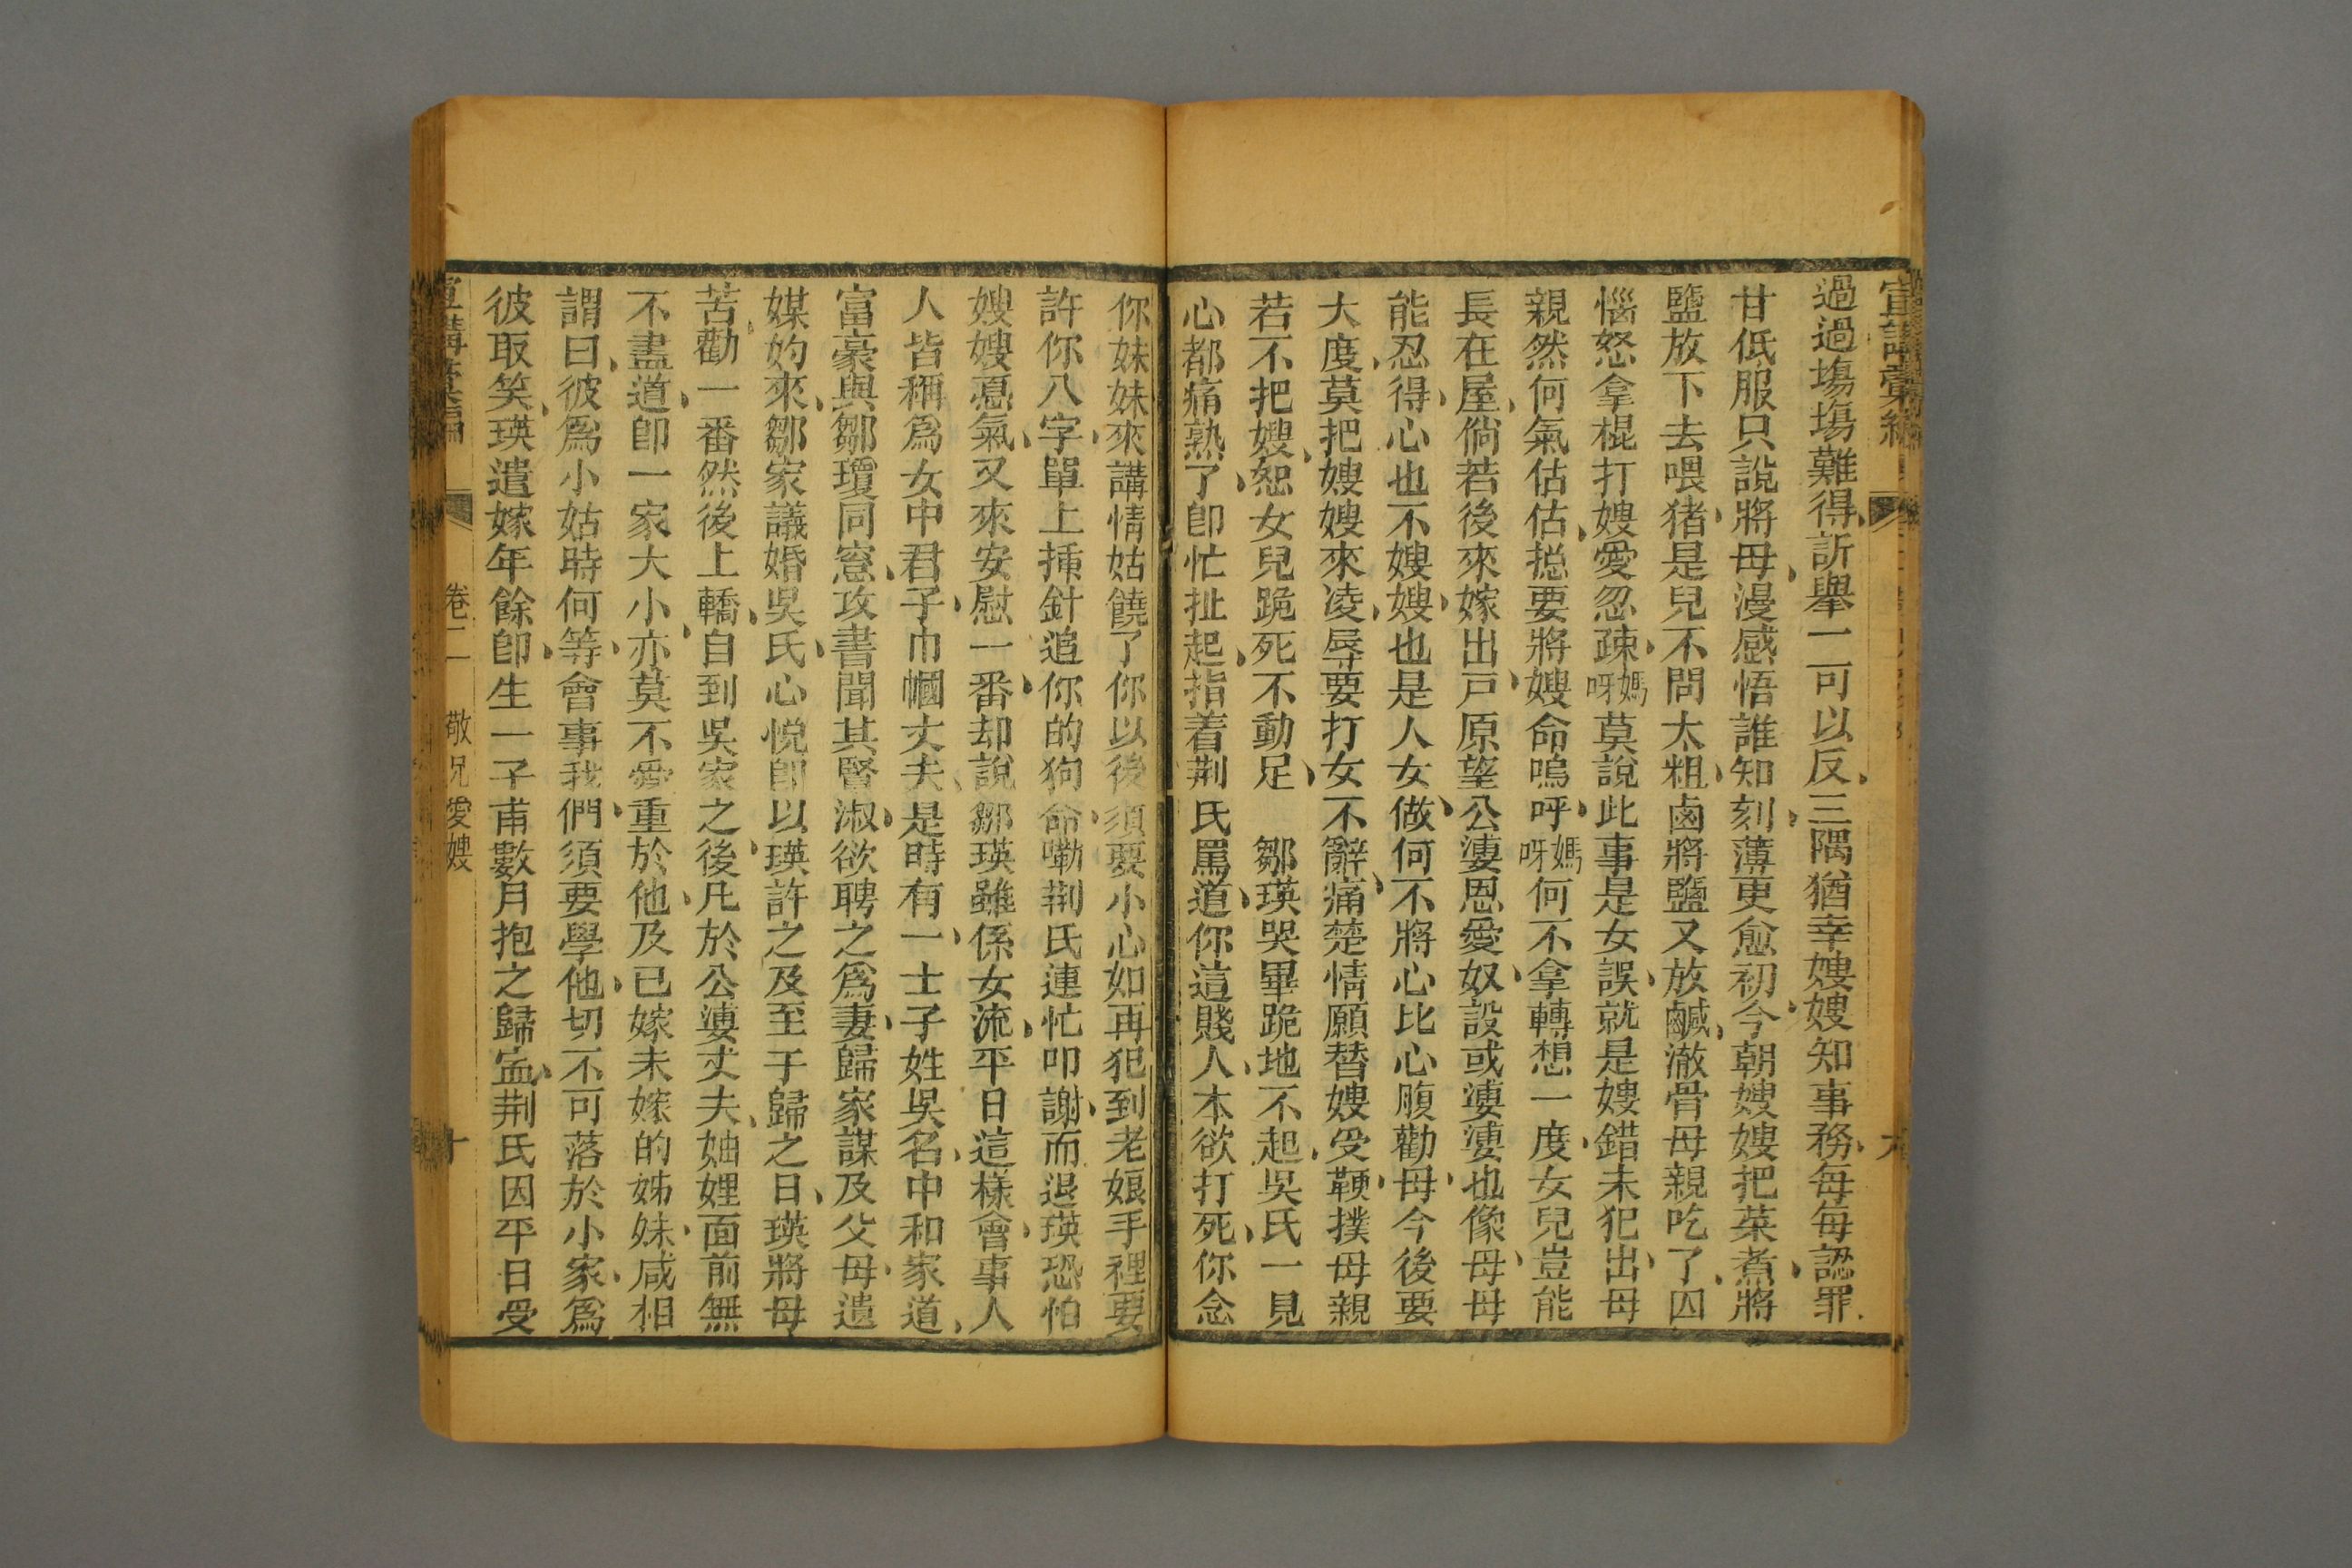 宣講彙編
過過塲塲難得訴舉一可以反三隅猶幸嫂嫂知事務每每認罪
甘低服只說將母漫感悟誰知刻薄更愈初今朝嫂嫂把菜煮將
鹽放下去喂猪是兒不問太粗鹵將鹽又放鹹澈骨母親吃了囚
惱怒拿棍打嫂愛忽疎媽呀莫說此事是女誤就是嫂錯未犯出母
親然何氣估估搃要將嫂命嗚呼媽呀何不拿轉想一度女兒豈能
長在屋倘若後來嫁出戸原望公婆恩愛奴設或婆婆也像母母
能忍得心也不嫂嫂也是人女做何不將心比心腹勸母今後要
大度莫把嫂嫂來凌辱要打女不辭痛楚情願替嫂受鞕撲母親
若不把嫂恕女兒跪死不動足　鄒瑛哭畢跪地不起吳氏一見
心都痛熟了卽忙扯起指着荆氏罵道你這賤人本欲打死你念
你妹妹來講情姑饒了你以後須要小心如再犯到老娘手裡要
許你八字單上揷針追你的狗命嘞荆氏連忙叩謝而退瑛恐怕
嫂嫂慪氣又來安慰一番却說鄒瑛雖係女流平日這樣會事人
人皆稱爲女中君子巾幗丈夫是時有一士子姓吳名中和家道
富豪與鄒瓊同窻攻書聞其賢淑欲聘之爲妻歸家謀及父母遣
媒妁來鄒家議婚吳氏心悅卽以瑛許之及至于歸之日瑛將母
苦勸一番然後上轎自到吳家之後凡於公婆丈夫妯娌面前無
不盡道卽一家大小亦莫不愛重於他及已嫁未嫁的姊妹咸相
謂曰彼爲小姑時何等會事我們須要學他切不可落於小家爲
彼取笑瑛遣嫁年餘卽生一子甫數月抱之歸寍荆氏因平日受
宣講彙編　卷二　敬兄愛嫂　十